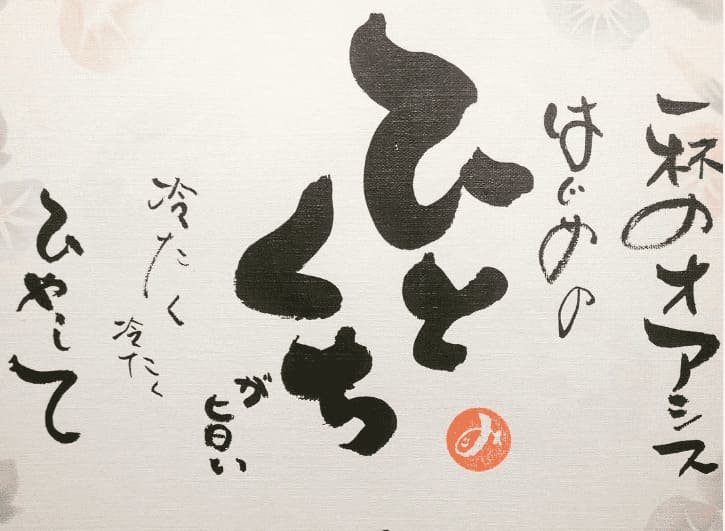 一杯のオアシス
はじめの
ひと
くち
が旨い
冷たく
冷たく
ひやして